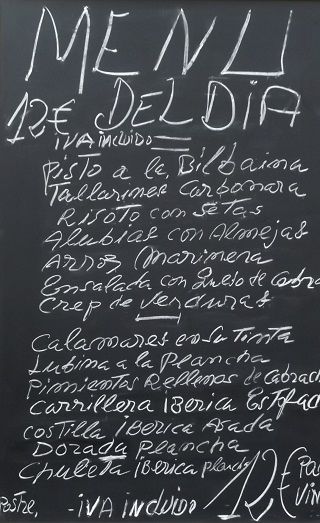 MENU
DEL DÍA
12€
IVA incluido
Pisto a la Bilbaina
Tallarines Carbonara
Risoto con Setas
Alubias con Almejas
Arroz Marinera
Ensalada con Queso de Cabra
Crep de Verduras
Calamares en su Tinta
Lubina a la Plancha
Pimientas Rellenas de Cabrac
Carrillera iBerica Estofad
Costilla iBerica Asada
Dorada Plancha
Chuleta iBerica plancha
12€
Pa
Vin
Postre, -IVA INCLUIDO